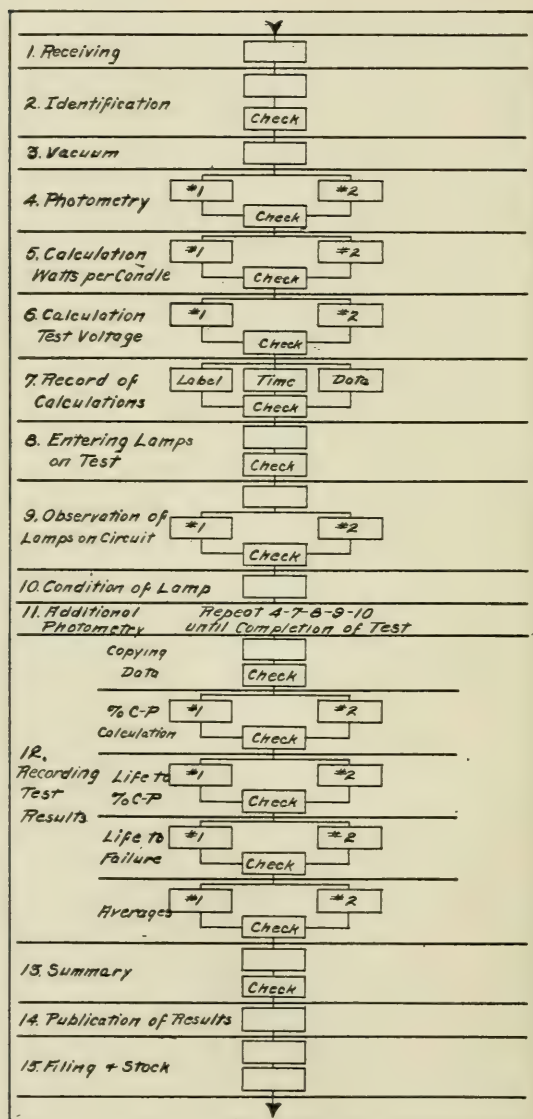 1. Receiving
2. Identification
Check
3. Vacuum
4. Photometry
#1
#2
Check
5. Calculation
Watts per Candle
#1
#2
Check
6. Calculation
Test Voltage
#1
#2
Check
7. Record of
Calculations
Label
Time
Data
Check
8. Entering Lamps
on Test
Check
9. Observation of
Lamps on Circuit
#1
#2
Check
10. Condition of Lamp
11. Additional
Photometry
Repeat 4-7-8-9-10
until Completion of Test
12.
Recording
Test
Results
Copying
Data
Check
% C-P
Calculation
#1
#2
Check
Life to
% C-P
#1
#2
Check
Life to
Failure
#1
#2
Check
Averages
#1
#2
Check
13. Summary
Check
14. Publication of Results
15. Filing + Stock